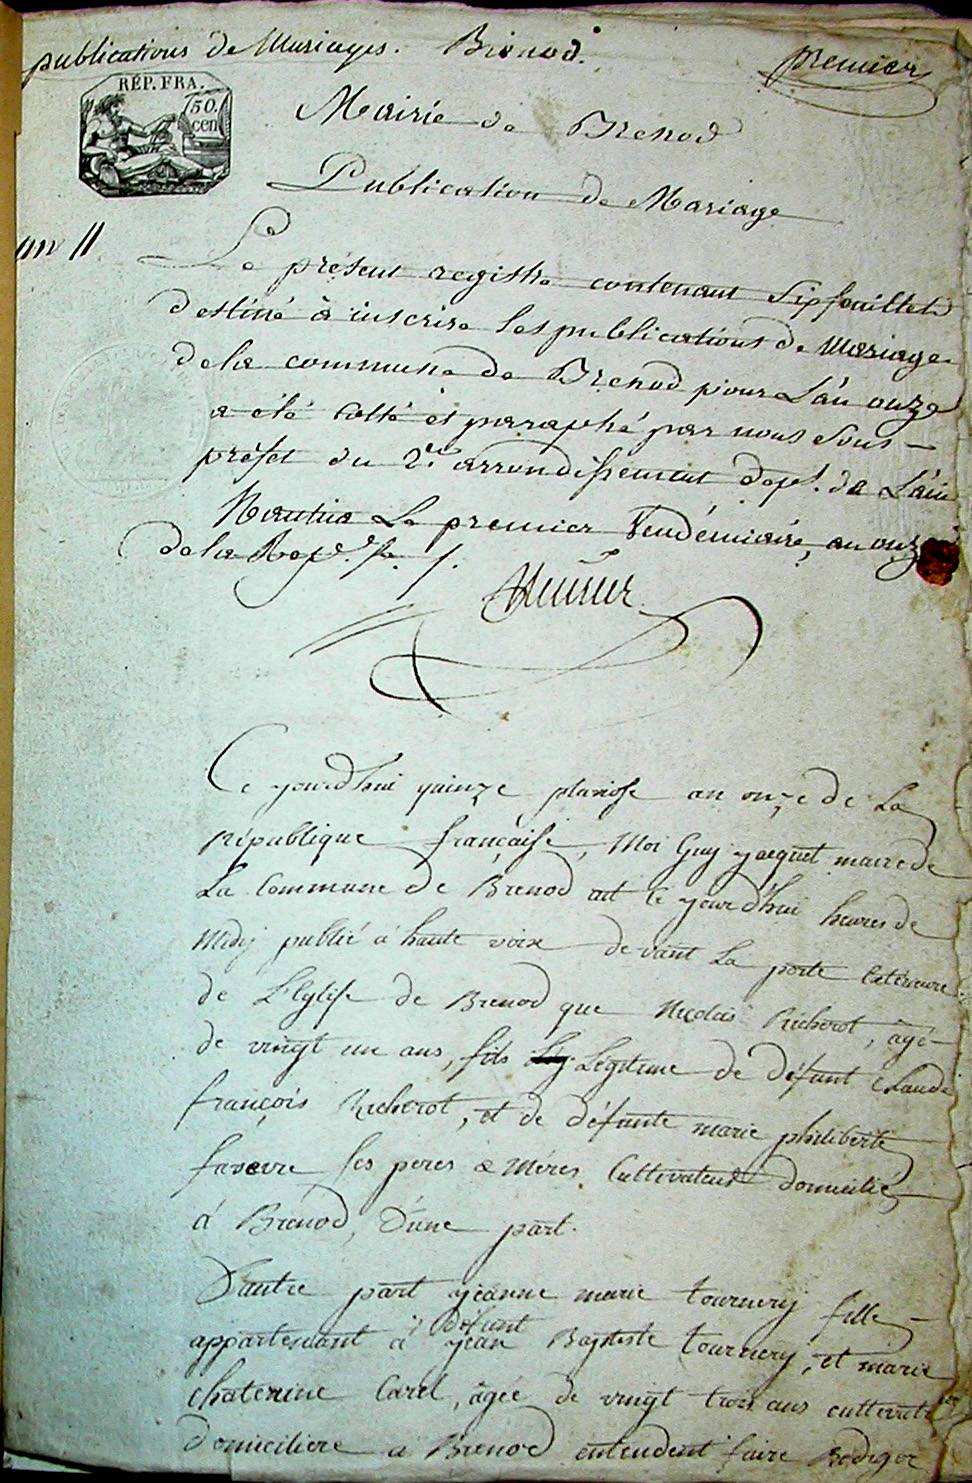 publications de Mariages. Brenod.
premier
RÉP. FRA.
50.
cen
Mairie de Brenod
Publication de Mariage
an 11
Le présent registre contenant Six feuillets
destiné à inscrire les publications de Mariage
de la commune de Brenod pour L'an onze
a été Cotté et paraphé par nous Sous-
préfet du 2e. arrondissement dept. de L'ain
Nantua Le premier Vendémiaire, an onze
de la Rep. fr. /.
Ce jourd'hui quinze pluviose an onze de La
république française, Moi Guy jacquet maire de
La Commune de Brenod ait Ce jourd'hui heures de
Midy publié a haute voix devant La porte Extérieure
de L'Eglise de Brenod que Nicolas Richerot, âgé
de vingt un ans, fils Leg Légitime de défunt Claude
françois Richerot, et de défunte marie philiberte
favevre ses peres & Méres Cultivateurs domiciliés
à Brenod, D'une part.
D'autre part jeanne marie tournery fille
défunt
appartenant à jean Baptiste tournery, et marie
chaterine Carrel, âgée de vingt trois ans
domiciliere a Brenod entendent faire Rediger